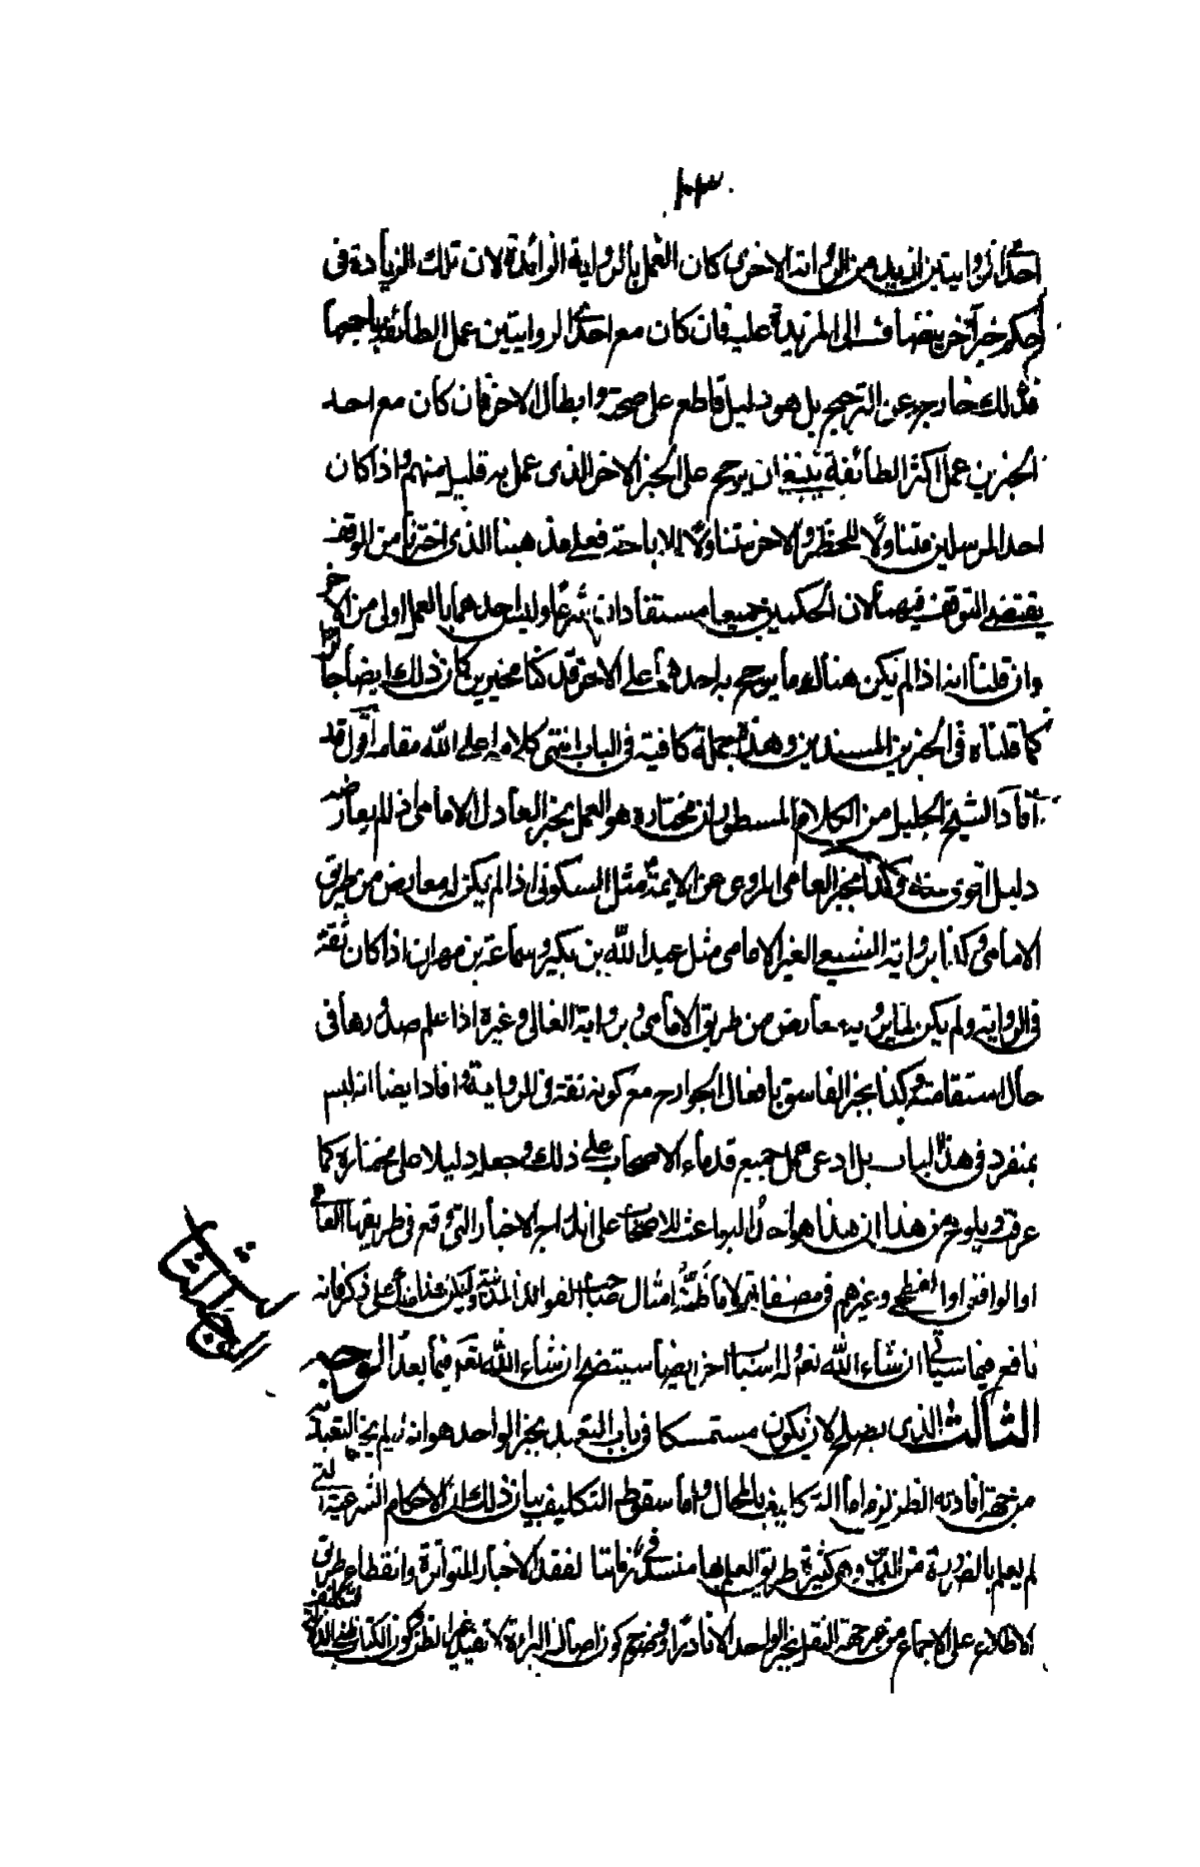 ١٠٣
احدى الروايتين ازيد من الرواية الاخرى كان العمل بالرواية الزائدة لان تلك الزيادة فى
حكم خبر آخر ينضاف الى المزيدة عليه فان كان مع احدى الروايتين عمل الطائفة باجمعها
فذلك خارج عن الترجيح بل هو دليل قاطع على صحته وابطال الاخر فان كان مع احد
الخبرين عمل اكثر الطائفة ينبغى ان يرجح على الخبر الاخر الذى عمل به قليل منهم واذا كان
احد المرسلين متناولا للحظر والاخر متناولا للاباحة فعلى مذهبنا الذى اخترنا من الوقف
يقتضى التوقف فيهما لان الحكمين جميعا مستفادان شرعا وليس احدهما بالعمل اولى من الاخر
وان قلنا انه اذا لم يكن هناك ما يرجح به احدهما على الاخر قد كنا مخيرين كان ذلك ايضا جائزا
كما قلناه فى الخبرين المسندين وهذه جملة كافية فى الباب انتهى كلامه اعلى الله مقامه اقول قد
افاد الشيخ الجليل من الكلام المسطور ان مختاره هو العمل بخبر العادل الامامى اذ لم يعارضه
دليل اقوى منه وكذا بخبر العامى المروى عن الائمة مثل السكونى اذا لم يكن له معارض من طريق
الامامى وكذا برواية الشيعى الغير الامامى مثل عبد الله بن بكير وسماعة بن مهران اذا كان ثقة
فى الرواية ولم يكن لما يرويه معارض من طريق الامامى وبرواية الغالى وغيره اذا علم صدورها فى
حال استقامته وكذا بخبر الفاسق بافعال الجوارح مع كونه ثقة فى الرواية وافاد ايضا انه ليس
بمنفرد فى هذا الباب بل ادعى عمل جميع قدماء الاصحاب على ذلك وجعله دليلا على مختاره كما
عرفت ويلوح من هذا ان هذا هو احد البواعث للاصحاب على ادراج الاخبار التى وقع فى طريقها العامى
او الواقفى او الفطحى وغيرهم فى مصنفاتهم لا ما ظنه امثال صاحب الفوائد المدنية وليكن هذا منك على ذكر فانه
نافع فيما سياتى ان شاء الله تعم وله اسباب اخر ايضا سيتضح ان شاء الله تعم فيما بعد الوجه
الثالث الذى يصلح لان يكون مستمسكا فى باب التعبد بخبر الواحد هو انه لو لم يجز التعبد به
من جهة افادته الظن لزم اما التكليف بالمحال واما سقوط التكليف بيان ذلك ان الاحكام الشرعية التى
لم يعلم بالضرورة من الدين وهى كثيرة طريق العلم بها منسد فى زماننا لفقد الاخبار المتواترة وانقطاع طريق
الاطلاع على الاجماع من غير جهة النقل بخبر الواحد الا نادرا ووضوح كون اصالة البرائة لا تفيد غير الظن وكون الكتاب ظنى الدلالة
الوجه الثالث